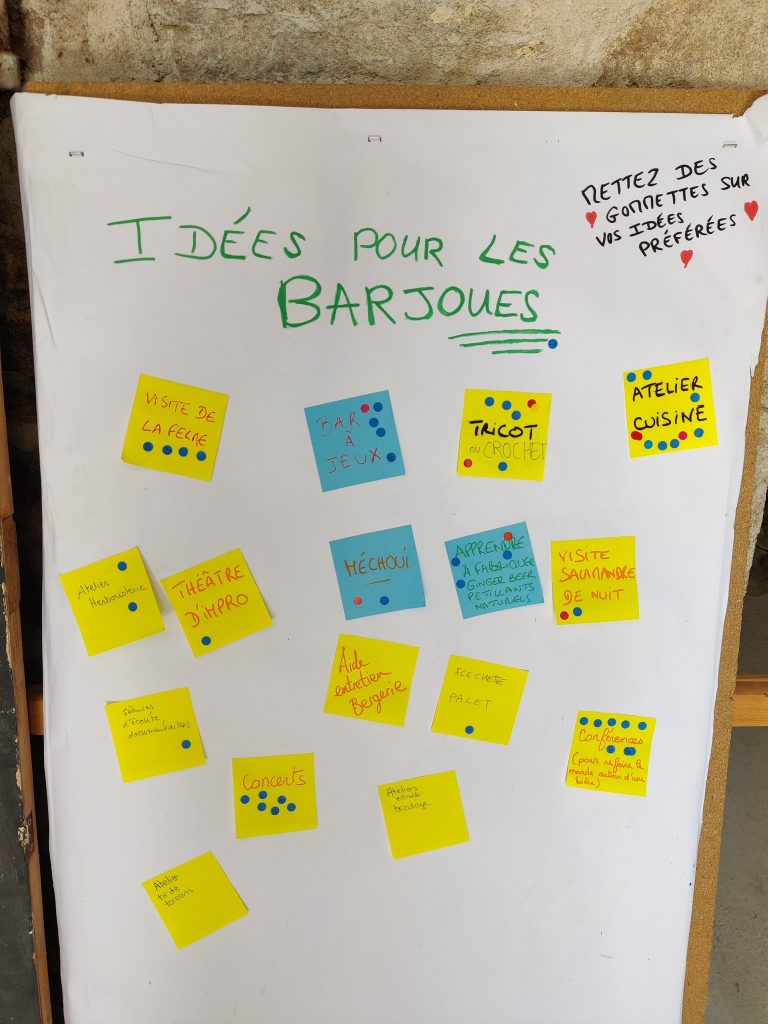 METTEZ DES
GOMMETTES SUR
VOS IDÉES
PRÉFÉRÉES
IDÉES POUR LES
BARJOUES
VISITE DE
LA FERME
BAR
À
JEUX
TRICOT
OU CROCHET
ATELIER
CUISINE
Atelier
Herboristerie
THÉÂTRE
D'IMPRO
MÉCHOUI
APPRENDRE
À FABRIQUER
GINGER BEER
PETILLANTS
NATURELS
VISITE
SALAMANDRE
DE NUIT
Aide
entretien
Bergerie
FLECHETE
PALET
d'écoute
documentaires
Conférences
(pour refaire le
monde autour d'une
bière)
Concerts
Ateliers
bricolage
Atelier
tri de
toisons